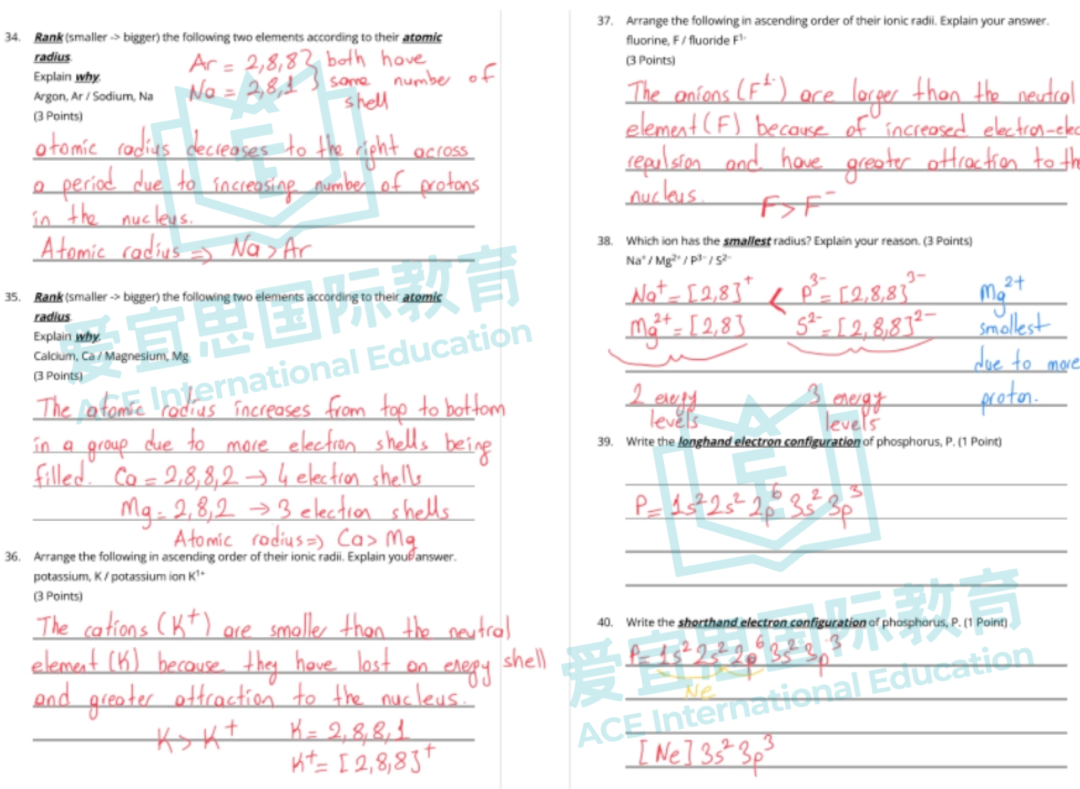 34. Rank (smaller -> bigger) the following two elements according to their atomic
radius.
Explain why.
Argon, Ar / Sodium, Na
(3 Points)
Ar = 2,8,8 } both have
Na = 2,8,1 } same number of
shell
atomic radius decreases to the right across
a period due to increasing number of protons
in the nucleus.
Atomic radius => Na > Ar
35. Rank (smaller -> bigger) the following two elements according to their atomic
radius.
Explain why.
Calcium, Ca / Magnesium, Mg
(3 Points)
The atomic radius increases from top to bottom
in a group due to more electron shells being
filled. Ca = 2,8,8,2 → 4 electron shells
Mg = 2,8,2 → 3 electron shells
Atomic radius => Ca > Mg
36. Arrange the following in ascending order of their ionic radii. Explain your answer.
potassium, K / potassium ion K¹⁺
(3 Points)
The cations (K⁺) are smaller than the neutral
element (K) because they have lost an enegy shell
and greater attraction to the nucleus.
K > K⁺ K = 2,8,8,1
K⁺ = [2,8,8]⁺
37. Arrange the following in ascending order of their ionic radii. Explain your answer.
fluorine, F / fluoride F¹⁻
(3 Points)
The anions (F¹⁻) are larger than the neutral
element (F) because of increased electron-elec
repulsion and have greater attraction to th
nucleus.
F > F⁻
38. Which ion has the smallest radius? Explain your reason. (3 Points)
Na⁺ / Mg²⁺ / P³⁻ / S²⁻
Na⁺ = [2,8]⁺ < P³⁻ = [2,8,8]³⁻ Mg²⁺
Mg²⁺ = [2,8] S²⁻ = [2,8,8]²⁻ smallest
due to more
2 energy 3 energy proton.
levels levels
39. Write the longhand electron configuration of phosphorus, P. (1 Point)
P = 1s² 2s² 2p⁶ 3s² 3p³
40. Write the shorthand electron configuration of phosphorus, P. (1 Point)
P = 1s² 2s² 2p⁶ 3s² 3p³
Ne
[Ne] 3s² 3p³
爱宜思国际教育
ACE International Education
爱宜思国际教育
ACE International Education